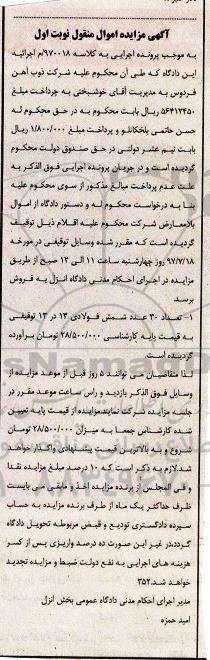 آگهی مزایده اموال منقول نوبت اول
به موجب پرونده اجرایی به کلاسه ۹۷۰۰۱۸/م اجرائیه
این دادگاه که طی آن محکوم علیه شرکت ذوب آهن
فردوس به مدیریت آقای خوشبختی به پرداخت مبلغ
۵۶۴۱۳۴۵۰ ریال بابت محکوم به در حق محکوم له
حسن حاتمی بلخکانلو و پرداخت مبلغ ۱/۸۰۰/۰۰۰ ریال
بابت نیم عشر دولتی در حق صندوق دولت محکوم
گردیده است و در جریان پرونده اجرایی فوق الذکر به
علت عدم پرداخت مبالغ مذکور از سوی محکوم علیه
بنا به درخواست محکوم له و دستور دادگاه از اموال
بلامعارض شرکت محکوم علیه اقلام ذیل توقیف
گردیده است که مقرر شده وسایل توقیفی در مورخه
۹۷/۷/۱۸ روز چهارشنبه ساعت ۱۱ الی ۱۲ صبح از طریق
مزایده در اجرای احکام مدنی دادگاه انزل به فروش
برسد.
۱- تعداد ۳۰ عدد شمش فولادی ۱۳ در ۱۳ توقیفی
به قیمت پایه کارشناسی ۲۸/۵۰۰/۰۰۰ تومان برآورده
گردیده است.
لذا متقاضیان می توانند ۵ روز قبل از موعد مزایده از
وسایل فوق الذکر بازدید و راس ساعت موعد مقرر در
جلسه مزایده شرکت نمایند.مزایده از قیمت پایه تعیین
شده کارشناس جمعا به میزان ۲۸/۵۰۰/۰۰۰ تومان
شروع و به بالاترین قیمت پیشنهادی واگذار خواهد
شد.لازم به ذکر است که ۱۰ درصد مبلغ مزایده نقدا
و فی المجلس از برنده مزایده اخذ و مابقی می بایست
ظرف حداکثر یک ماه از طرف برنده مزایده به حساب
سپرده دادگستری تودیع و قبض مربوطه تحویل دادگاه
گردد،در غیر این صورت ده درصد واریزی پس از کسر
هزینه های اجرایی به نفع دولت ضبط و مزایده تجدید
خواهد شد.۳۵۲
مدیر اجرای احکام مدنی دادگاه عمومی بخش انزل
امید حمزه